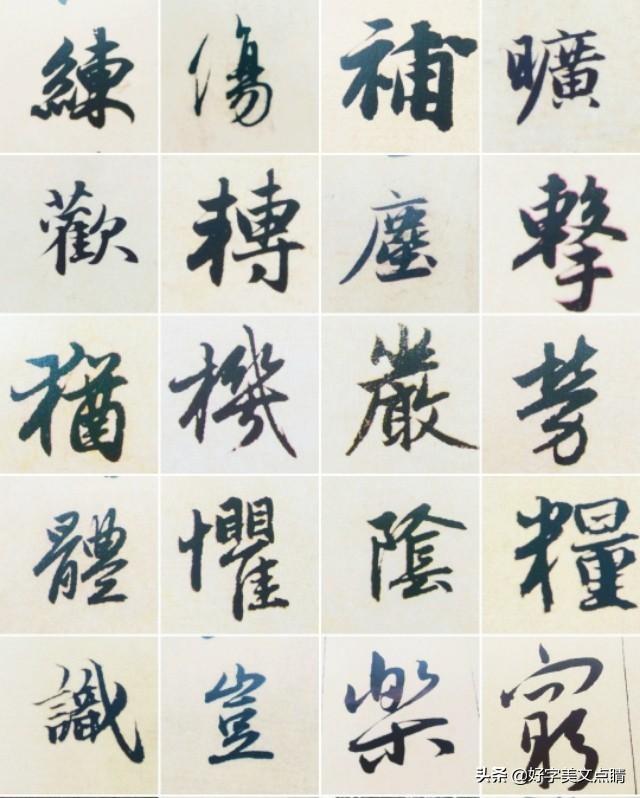 練 傷 補 曠
歡 轉 塵 擊
猶 機 嚴 勞
體 懼 陰 糧
識 豈 樂 窮
头条 @好字美文点睛